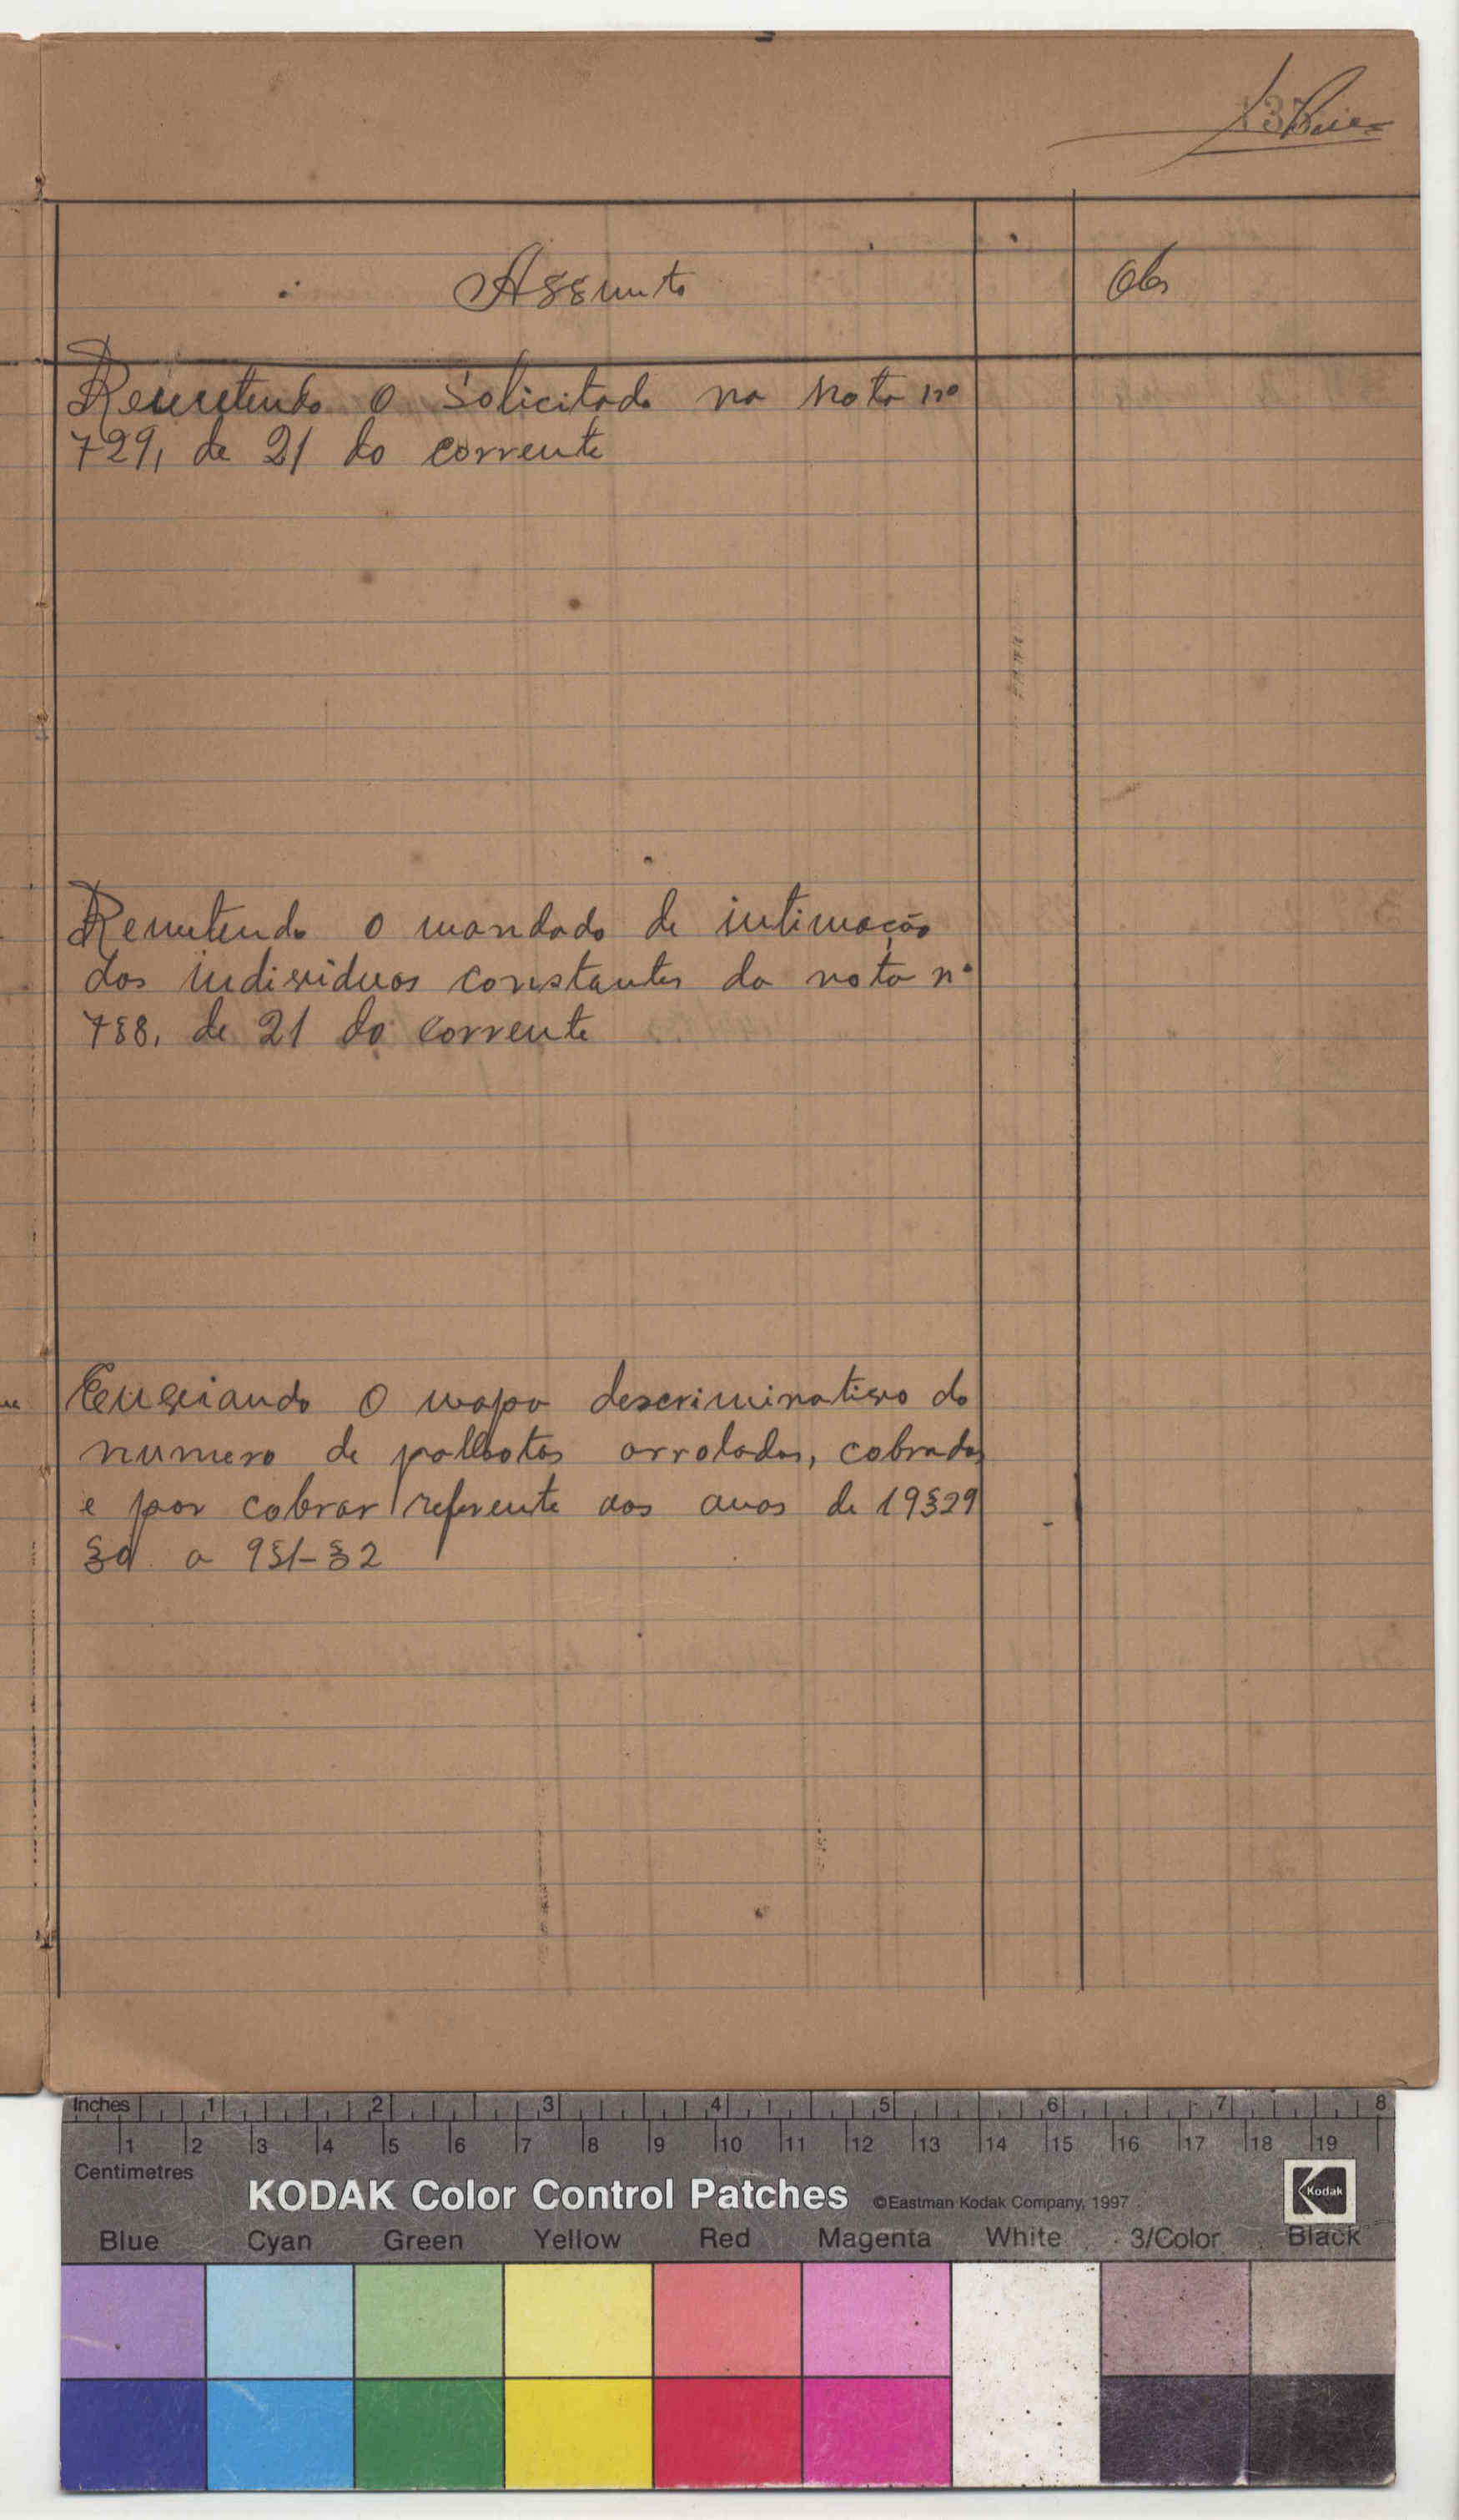 Assunto
Obs
Remetendo o solicitado na nota nº
729, de 21 do corrente
Remetendo o mandado de intimação
dos individuos constantes da nota nº
788, de 21 do corrente
Enviando o mapa descriminativo do
numero de palhotas arroladas, cobradas
e por cobrar referente aos anos de
30 a 931-32
Inches 1 2 3 4 5 6 7 8
1 2 3 4 5 6 7 8 9 10 11 12 13 14 15 16 17 18 19
Centimetres
KODAK Color Control Patches ©Eastman Kodak Company, 1997 Kodak
Blue Cyan Green Yellow Red Magenta White 3/Color Black